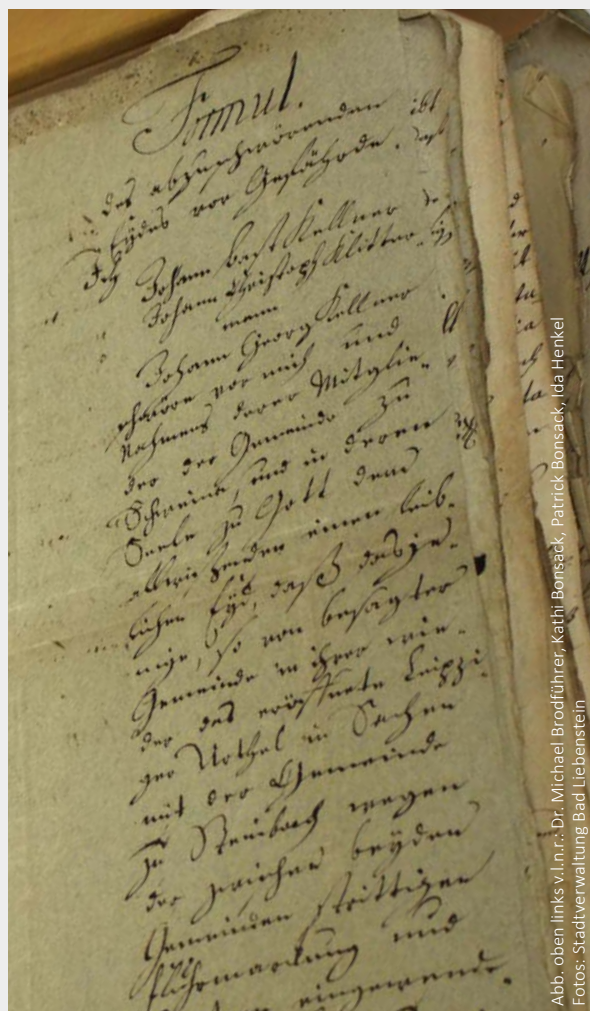 Formul.
des abzuschwörenden
Eydes vor Gefährde.
Ich Johann Bast Kellner
Johann Christoph Klitter-
mann
Johann Georg Kellner
schwöre vor mich und
Nahmens derer Mitglie-
der der Gemeinde zu
Schweina, und in deren
Seele zu Gott dem
allwißenden einen leib-
lichen Eyd, daß dasje-
nige, so von besagter
Gemeinde in ihrer wie-
der das eröffnete Leipzi-
ger Urthel in Sachen
mit der Gemeinde
zu Steinbach wegen
der zwischen beyden
Gemeinden strittigen
Fluhrmarckung und
eingewende-
Abb. oben links v.l.n.r.: Dr. Michael Brodführer, Kathi Bonsack, Patrick Bonsack, Ida Henkel
Fotos: Stadtverwaltung Bad Liebenstein